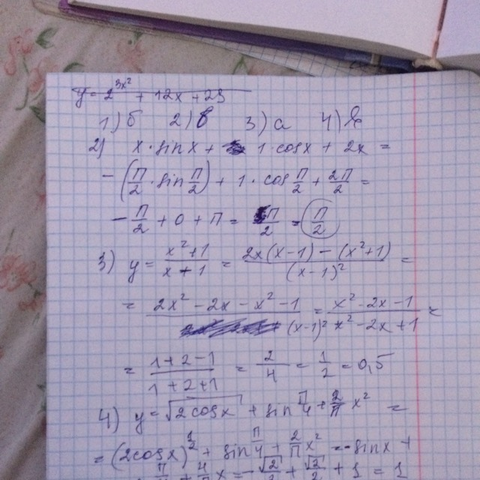 y = 2^{3x²} + 12x + 23
1) б 2) в 3) а 4) в
2) x · sin x + 1 · cos x + 2x =
-(π/2 · sin π/2) + 1 · cos π/2 + 2π/2 =
- π/2 + 0 + π = π/2 = π/2
3) y = (x² + 1)/(x + 1) = (2x(x - 1) - (x² + 1))/(x - 1)² =
= (2x² - 2x - x² - 1)/(x - 1)² = (x² - 2x - 1)/(x² - 2x + 1) =
= (1 + 2 - 1)/(1 + 2 + 1) = 2/4 = 1/2 = 0,5
4) y = √(2 cos x) + sin π/4 + 2/π x² =
= (2 cos x)^{1/2} + sin π/4 + 2/π x² = - sin x +
π/4 + 4/π x = - √2/2 + √2/2 + 1 = 1